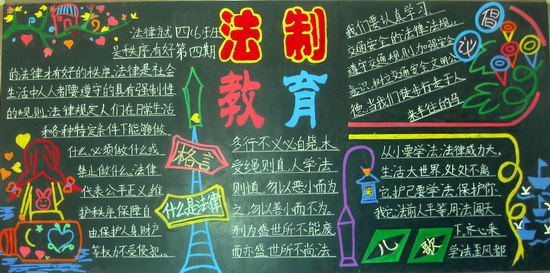 法制
教育
法律就 四(6)班
是秩序,有好 第四期
的法律才有好的秩序,法律是社会
生活中人人都要遵守的具有强制性
的规则,法律规定人们在日常生活
和各种特定条件下能够做
什么,必须做什么或
禁止做什么,法律
代表公平正义,维
护秩序保障自
由,保护人身财产
等权力不受侵犯。
格言
什么是法律
多行不义必自毙木
受绳则直人学法
则慎,勿以善小而为
之,勿以善小而不为。
刑为盛世所不能废
而亦盛世所不尚法
倡议
我们要认真学习
交通安全的法律法规,
遵守交通规则,加强安全
意识,树立交通安全文明公
德,当我们徒步行走于人
来车往的马
从小要学法,法律威力大,
生活大世界,处处不离
它,护已要学法,保护你
我它,法前人平等,用法闯天
下,齐心来
学法,
儿歌